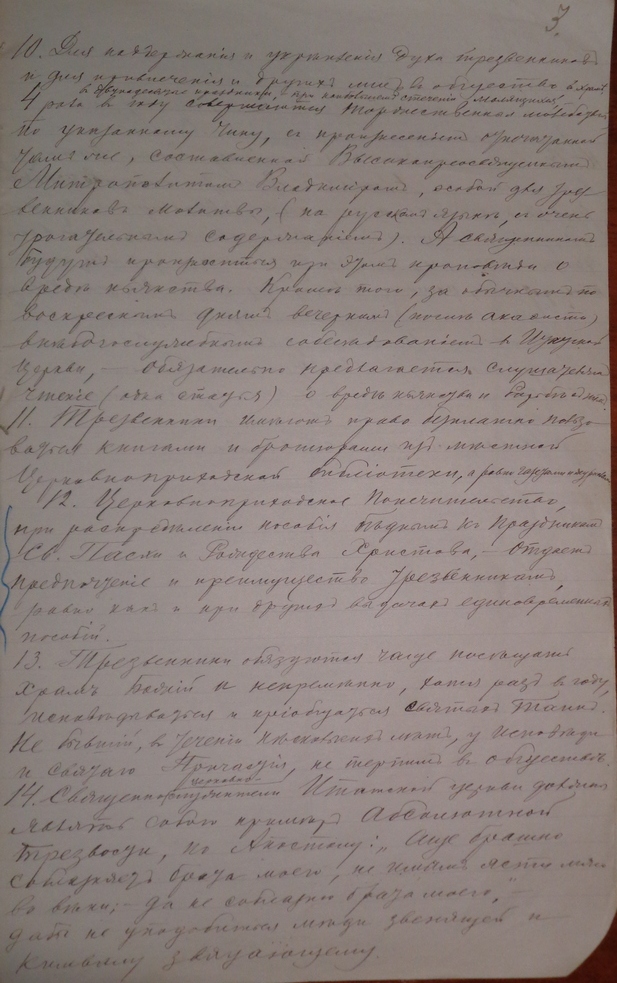 3.
10. Для поддержанія и укрѣпленія духа трезвенниковъ
и для привлеченія и другихъ лицъ въ общество въ храмѣ
въ двунадесятые праздники, при стеченіи молящихся
4 раза въ году совершаются торжественные молебствія
по указанному чину, съ произнесеніемъ отпечатанной
составленной Высокопреосвященнымъ
Митрополитомъ Владиміромъ, особой для трез-
венниковъ молитвы, (на русскомъ языкѣ, съ очень
трогательнымъ содержаніемъ). А священникомъ
будутъ произноситься при этомъ проповѣди о
вредѣ пьянства. Кромѣ того, за по
воскреснымъ днямъ вечернимъ (послѣ акаѳиста)
внѣбогослужебнымъ собесѣдованіемъ въ
церкви, — обязательно предлагается слушателямъ
чтеніе (одна статья) о вредѣ пьянства и борьбѣ съ нимъ.
11. Трезвенники имѣютъ право безплатно пользо-
ваться книгами и брошюрами изъ мѣстной
Церковноприходской библіотеки, а равно газетами и журналами
12. Церковноприходское Попечительство,
при распредѣленіи пособія бѣднымъ къ праздникамъ
Св. Пасхи и Рождества Христова, — отдаетъ
предпочтеніе и преимущество трезвенникамъ,
равно какъ и при другихъ выдачахъ единовременныхъ
пособій.
13. Трезвенники обязуются чаще посѣщать
храмъ Божій и непремѣнно, хотя разъ въ году,
исповѣдываться и пріобщаться святыхъ Таинъ.
Не бывшій, въ теченіи нѣсколькихъ лѣтъ, у исповѣди
и святаго Причастія, не терпимъ въ обществѣ.
14. Священно-церковно-служители церкви должны
являть собою примѣръ Абсолютной
трезвости, по Апостолу: „Аще брашно
соблазняетъ брата моего, не имамъ ясти мяса
во вѣки; — да не соблазню брата моего," —
дабы не уподобиться мѣди звенящей и
кимвалу звяцающему.